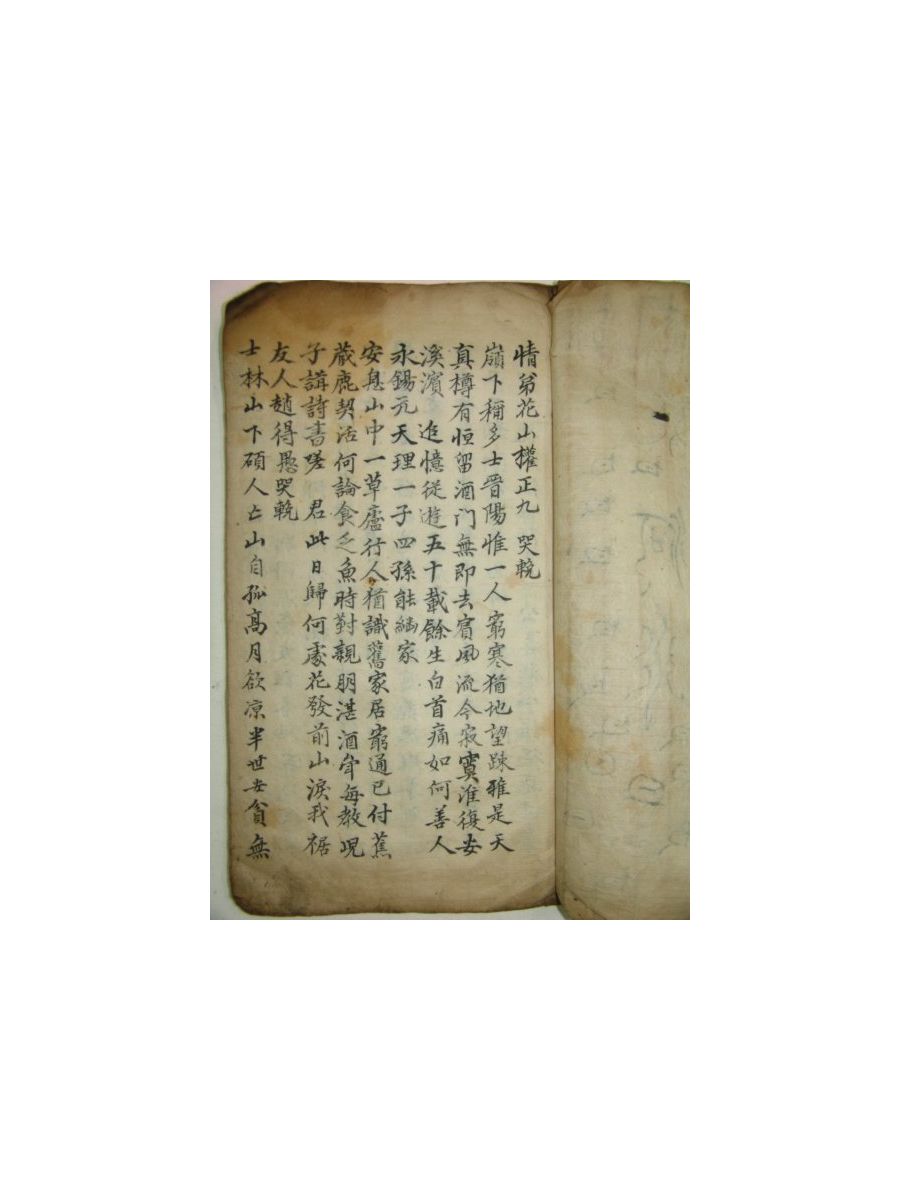 情弟花山權正九 哭輓
嶺下稱多士晋陽惟一人窮寒猶地望踈雅是天
真樽有恒留酒門無即去賓風流今寂寞淮復安
溪濱 追憶從遊五十載餘生白首痛如何善人
永錫元天理一子四孫能継家
安息山中一草廬行人猶識舊家居窮通已付蕉
蔵鹿契活何論食乏魚時對親朋湛酒甞每教児
子講詩書嗟 君此日歸何處花發前山淚我裾
友人趙得愚哭輓
士林山下碩人亡山自孤高月欲凉半世安貧無